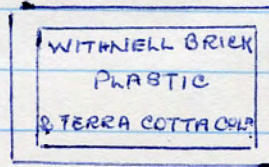 WITHNELL BRICK
PLASTIC
& TERRA COTTA COLD